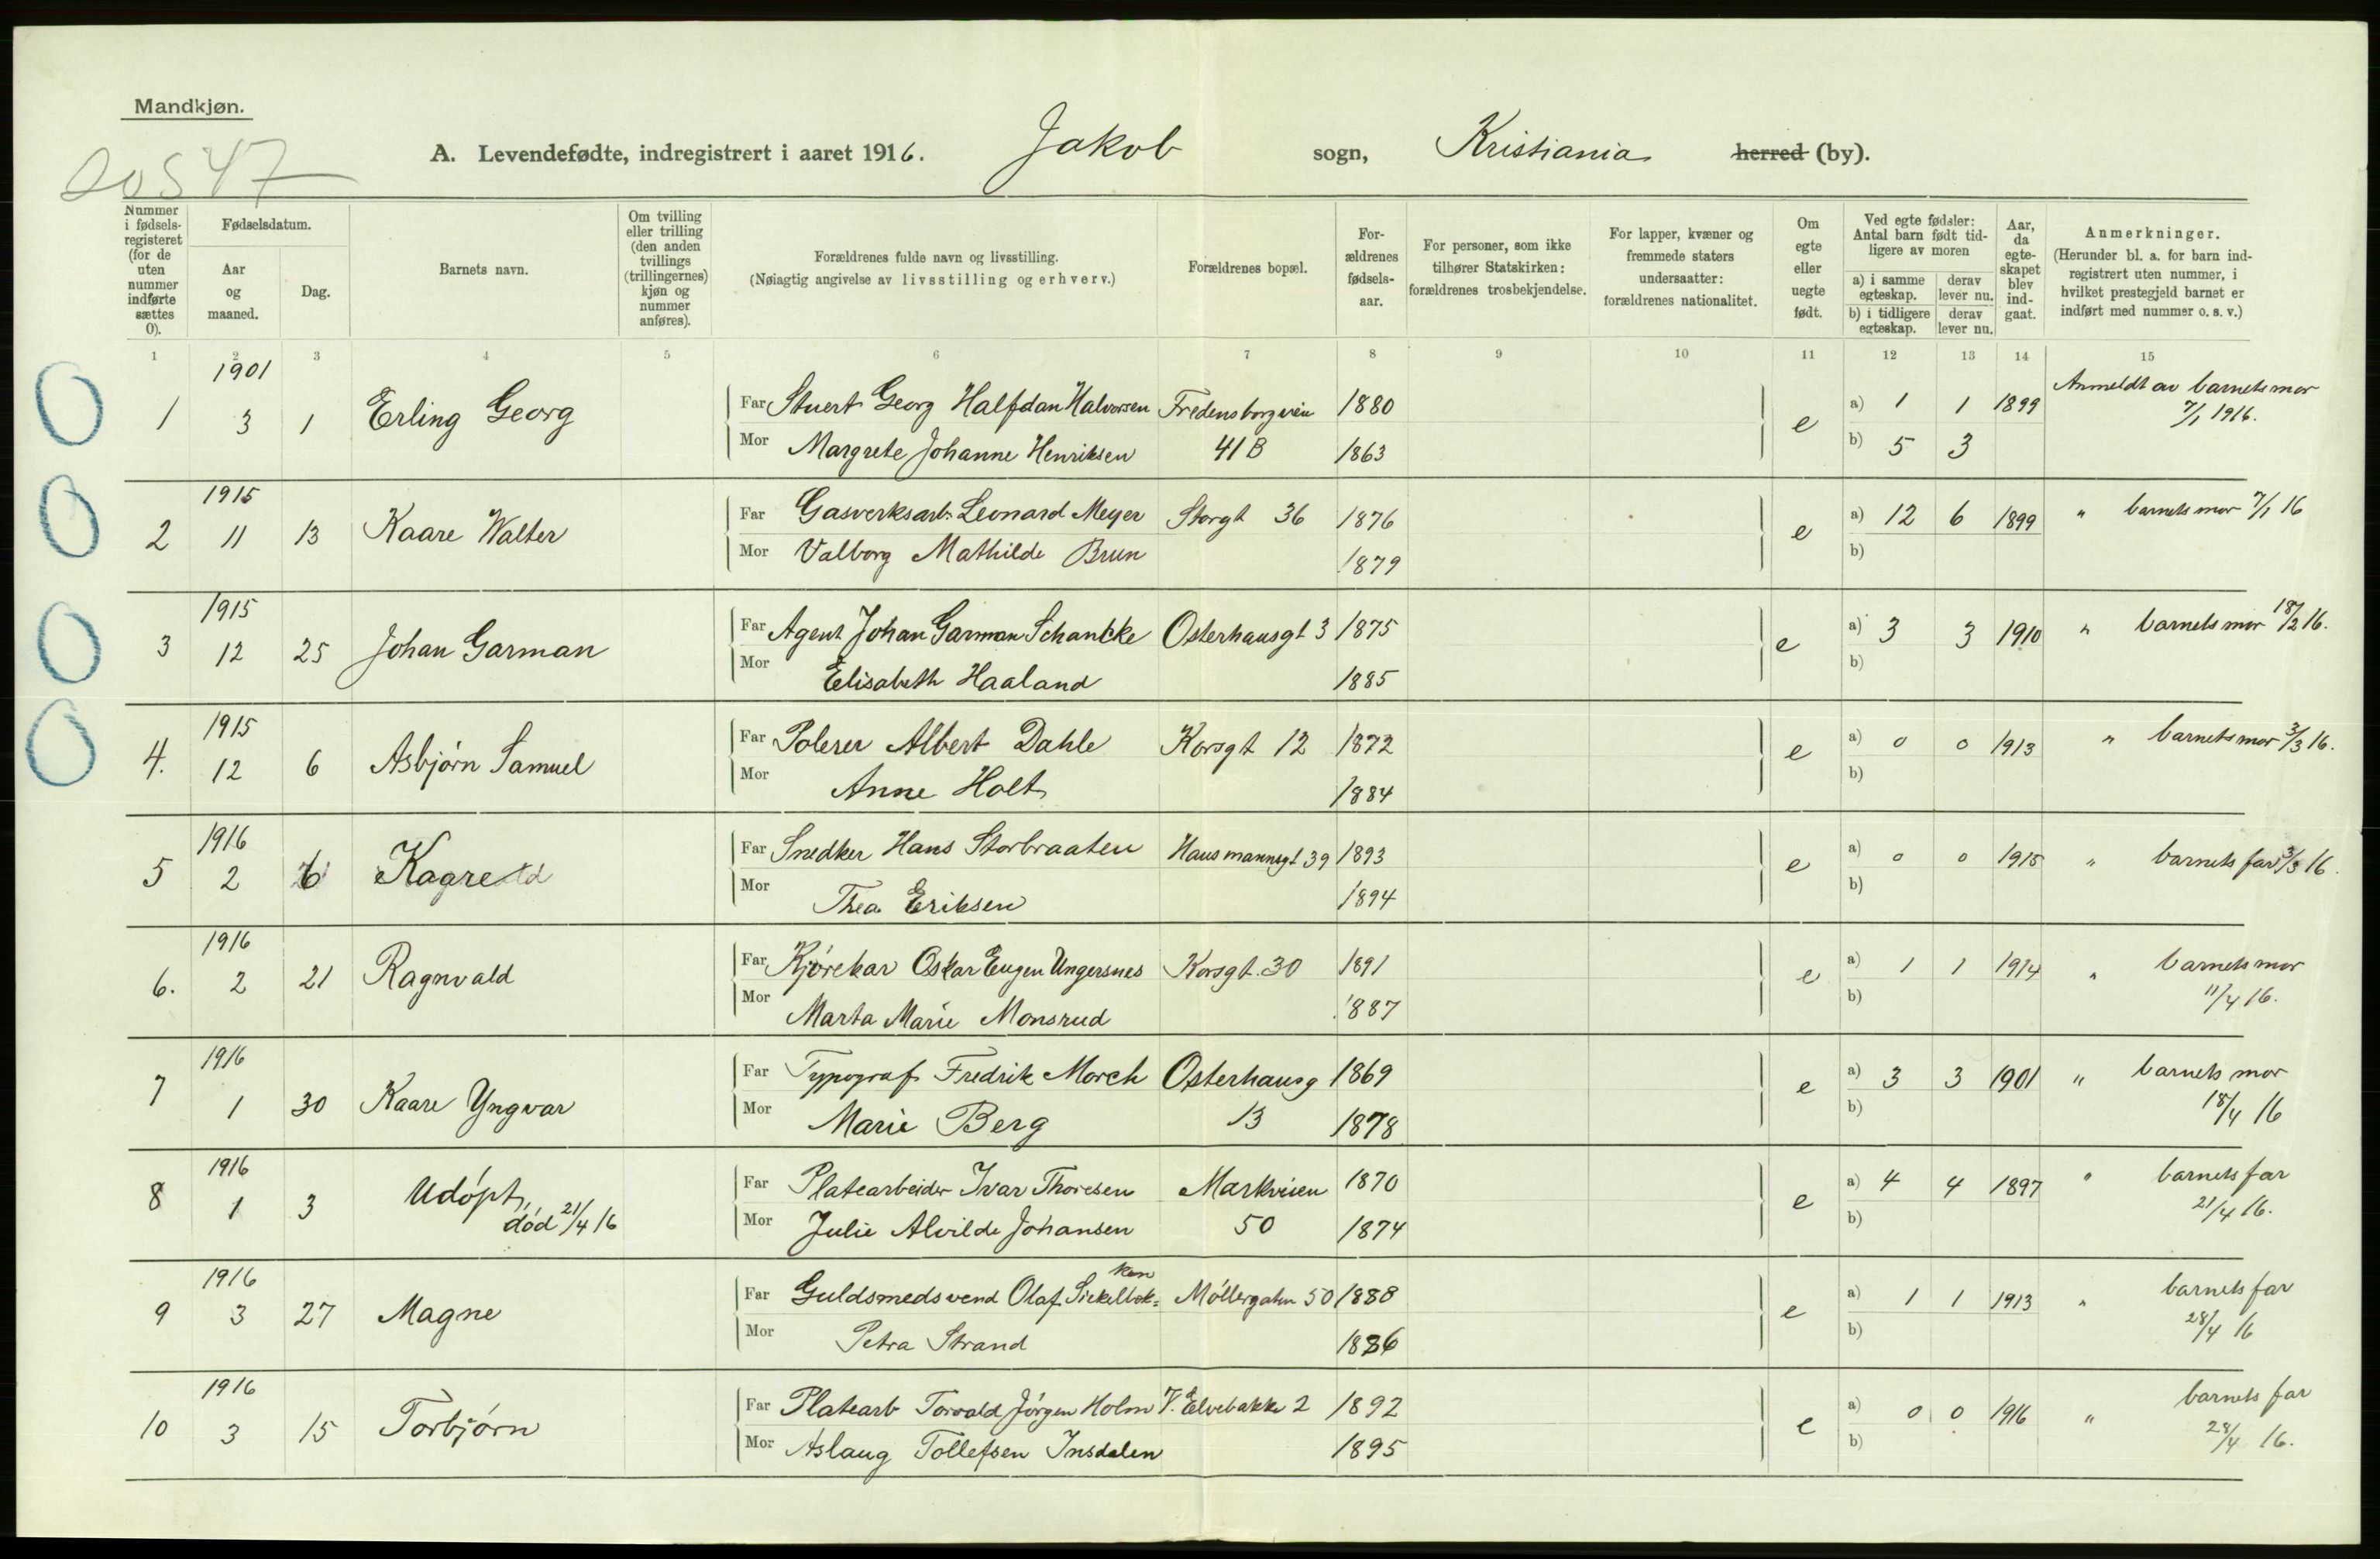 Mandkjøn.
20547
A. Levendefødte, indregistrert i aaret 1916. Jakob sogn, Kristiania herred (by).
Nummer i fødsels-registeret (for de uten nummer indførte sættes 0).
Fødselsdatum.
Aar og maaned.
Dag.
Barnets navn.
Om tvilling eller trilling (den anden tvillings (trillingernes) kjøn og nummer anføres).
Forældrenes fulde navn og livsstilling.
(Nøiagtig angivelse av livsstilling og erhverv.)
Forældrenes bopæl.
For-ældrenes fødsels-aar.
For personer, som ikke tilhører Statskirken: forældrenes trosbekjendelse.
For lapper, kvæner og fremmede staters undersaatter: forældrenes nationalitet.
Om egte eller uegte født.
Ved egte fødsler: Antal barn født tid-ligere av moren
a) i samme egteskap.
derav lever nu.
b) i tidligere egteskap.
derav lever nu.
Aar, da egte-skapet blev ind-gaat.
Anmerkninger.
(Herunder bl. a. for barn ind-registrert uten nummer, i hvilket prestegjeld barnet er indført med nummer o. s. v.)
1 2 3 4 5 6 7 8 9 10 11 12 13 14 15
0 1 1901 3 1 Erling Georg
Far Stuert Georg Halfdan Halvorsen Fredensborgveien 1880 e a) 1 1 1899 Anmeldt av barnets mor
Mor Margrete Johanne Henriksen 41 B 1863 b) 5 3 7/1 1916.
0 2 1915 11 13 Kaare Walter
Far Gasverksarb. Leonard Meyer Storgt 36 1876 e a) 12 6 1899 " barnets mor 7/1 16
Mor Valborg Mathilde Brun 1879 b)
0 3 1915 12 25 Johan Garman
Far Agent Johan Garman Schancke Osterhausgt 3 1875 e a) 3 3 1910 " barnets mor 18/2 16.
Mor Elisabeth Haaland 1885 b)
0 4. 1915 12 6 Asbjørn Samuel
Far Polerer Albert Dahle Korsgt 12 1872 e a) 0 0 1913 " barnets mor 3/3 16.
Mor Anne Holt 1884 b)
5 1916 2 6
Far Snedker Hans Storbraaten Hausmannsgt 39 1893 e a) 0 0 1915 " barnets far 3/3 16.
Mor Thea Eriksen 1894 b)
6. 1916 2 21 Ragnvald
Far Kjørekar Oskar Eugen Ungersnes Korsgt. 30 1891 e a) 1 1 1914 " barnets mor
Mor Marta Marie Monsrud 1887 b) 11/4 16.
7 1916 1 30 Kaare Yngvar
Far Typograf Fredrik Morch Osterhausg 1869 e a) 3 3 1901 " barnets mor
Mor Marie Berg 13 1878 b) 18/4 16
8 1916 1 3 Udøpt,
død 21/4 16
Far Platearbeider Ivar Thoresen Markveien 1870 e a) 4 4 1897 " barnets far
Mor Julie Alvilde Johansen 50 1874 b) 21/4 16.
9 1916 3 27 Magne
Far Guldsmedsvend Olaf Sickelbok=ken Møllergaten 50 1888 e a) 1 1 1913 " barnets far
Mor Petra Strand 1886 b) 28/4 16
10 1916 3 15 Torbjørn
Far Platearb Torvald Jørgen Holm V. Elvebakke 2 1892 e a) 0 0 1916 " barnets far
Mor Aslaug Tollefsen Insdalen 1895 b) 28/4 16.